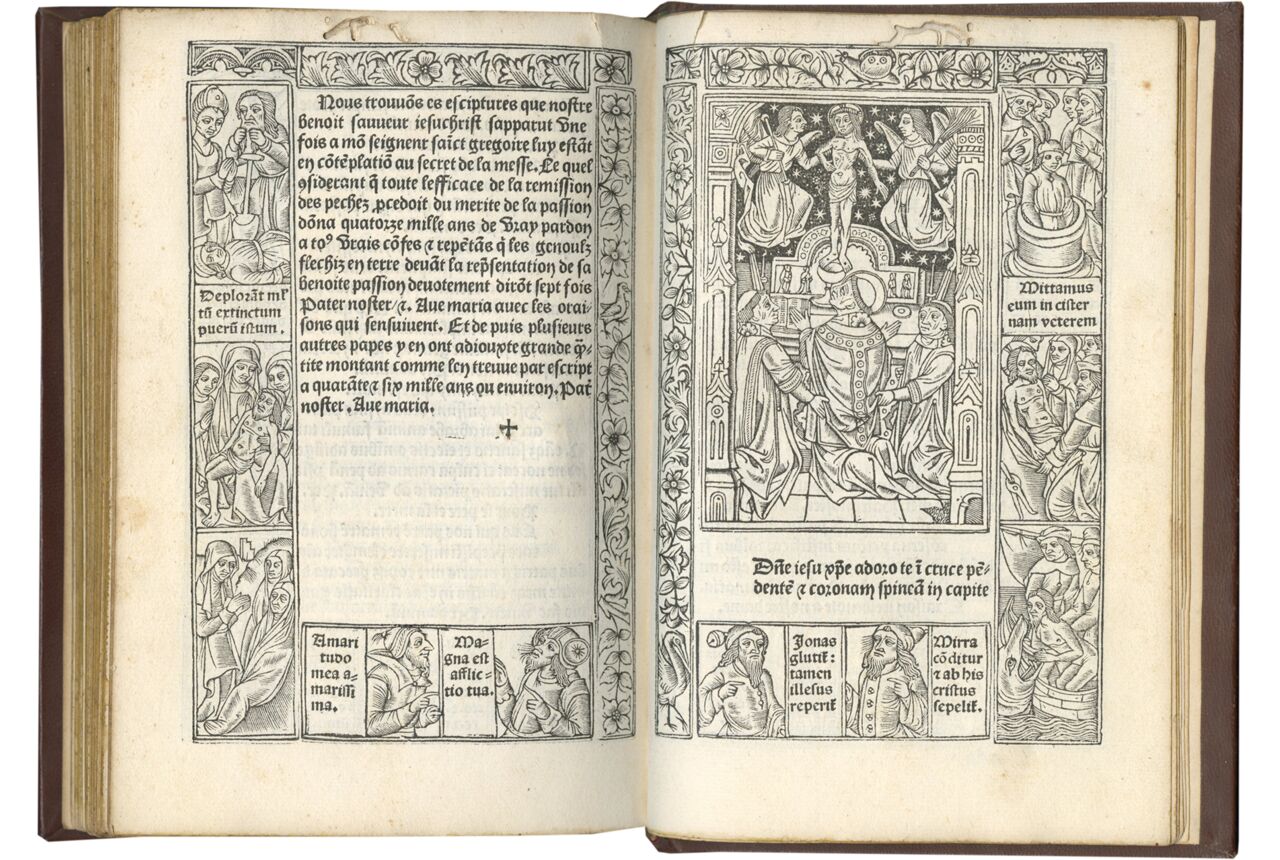 Nous trouuōs es esciptures que nostre
benoit sauueur iesuchrist sapparut vne
fois a mō seigneur saīct gregoire luy estāt
en cōtēplatiō au secret de la messe. Le quel
ꝯsiderant q̄ toute lefficace de la remission
des pechez ꝓcedoit du merite de la passion
dōna quatorze mille ans de vray pardon
a toꝰ vrais cōfes ⁊ repētās q̄ les genoulz
flechiz en terre deuāt la rep̄sentation de sa
benoite passion deuotement dirōt sept fois
Pater noster ⁊. Aue maria auec les orai⸗
sons qui sensuiuent. Et de puis plusieurs
autres papes y en ont adiouxte grande q̄⸗
tite montant comme len treuue par escript
a quarāte ⁊ six mille ans ou enuiron. Pat̄
noster. Aue maria.
Deplorāt mr̄
tū extinctum
puerū istum.
Amari
tudo
mea a⸗
marissi
ma.
Ma⸗
gna est
afflic⸗
tio tua.
Mittamus
eum in cister
nam veterem
Dn̄e iesu xp̄e adoro te ī cruce pē⸗
dentē ⁊ coronam spineā in capite
Jonas
glutit̄:
tamen
illesus
reperit̄
Mirra
cōditur
⁊ ab his
cristus
sepelit̄.